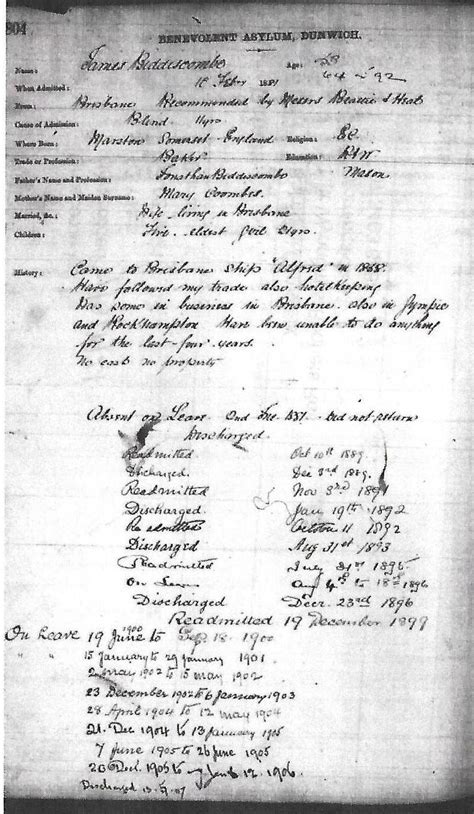 804
BENEVOLENT ASYLUM, DUNWICH.
Name: James Biddiscombe Age: 58 64 92
When Admitted: 18 Febry 1881
From: Brisbane Recommended by Messrs Beattie & Heal
Cause of Admission: Blind 11yrs
Where Born: Marston Somerset England Religion: Ec
Trade or Profession: Baker Education: R&W
Father's Name and Profession: Jonathan Biddiscombe Mason
Mother's Name and Maiden Surname: Mary Coombes
Married, &c.: Wife living in Brisbane
Children: Five eldest Girl 21yrs
History: Came to Brisbane ship "Alfred" in 1868.
Have followed my trade also hotelkeeping
Was some in business in Brisbane also in Gympie
and Rockhampton Have been unable to do anything
for the last four years.
No cash no property
Absent on Leave 2nd 1887. Did not return
Discharged.
Readmitted Oct 10th 1889.
Discharged. Dec 3rd 1889.
Readmitted Nov 3rd 1891
Discharged. Jany 19th 1892
Readmitted October 11 1892
Discharged Aug 31st 1893
Readmitted July 31st 1895
On Leave Aug 4th to 18th 1896
Discharged Decr. 23rd 1896
Readmitted 19 December 1899
On Leave 19 June 1900 to Sep 18. 1900
" " 15 January to 29 January 1901.
2 May 1902 to 15 May 1902
23 December 1902 to 6 January 1903
28 April 1904 to 12 May 1904
21 Dec 1904 to 13 January 1905
7 June 1905 to 26 June 1905
20 Dec. 1905 to 12. 1906.
Discharged 07